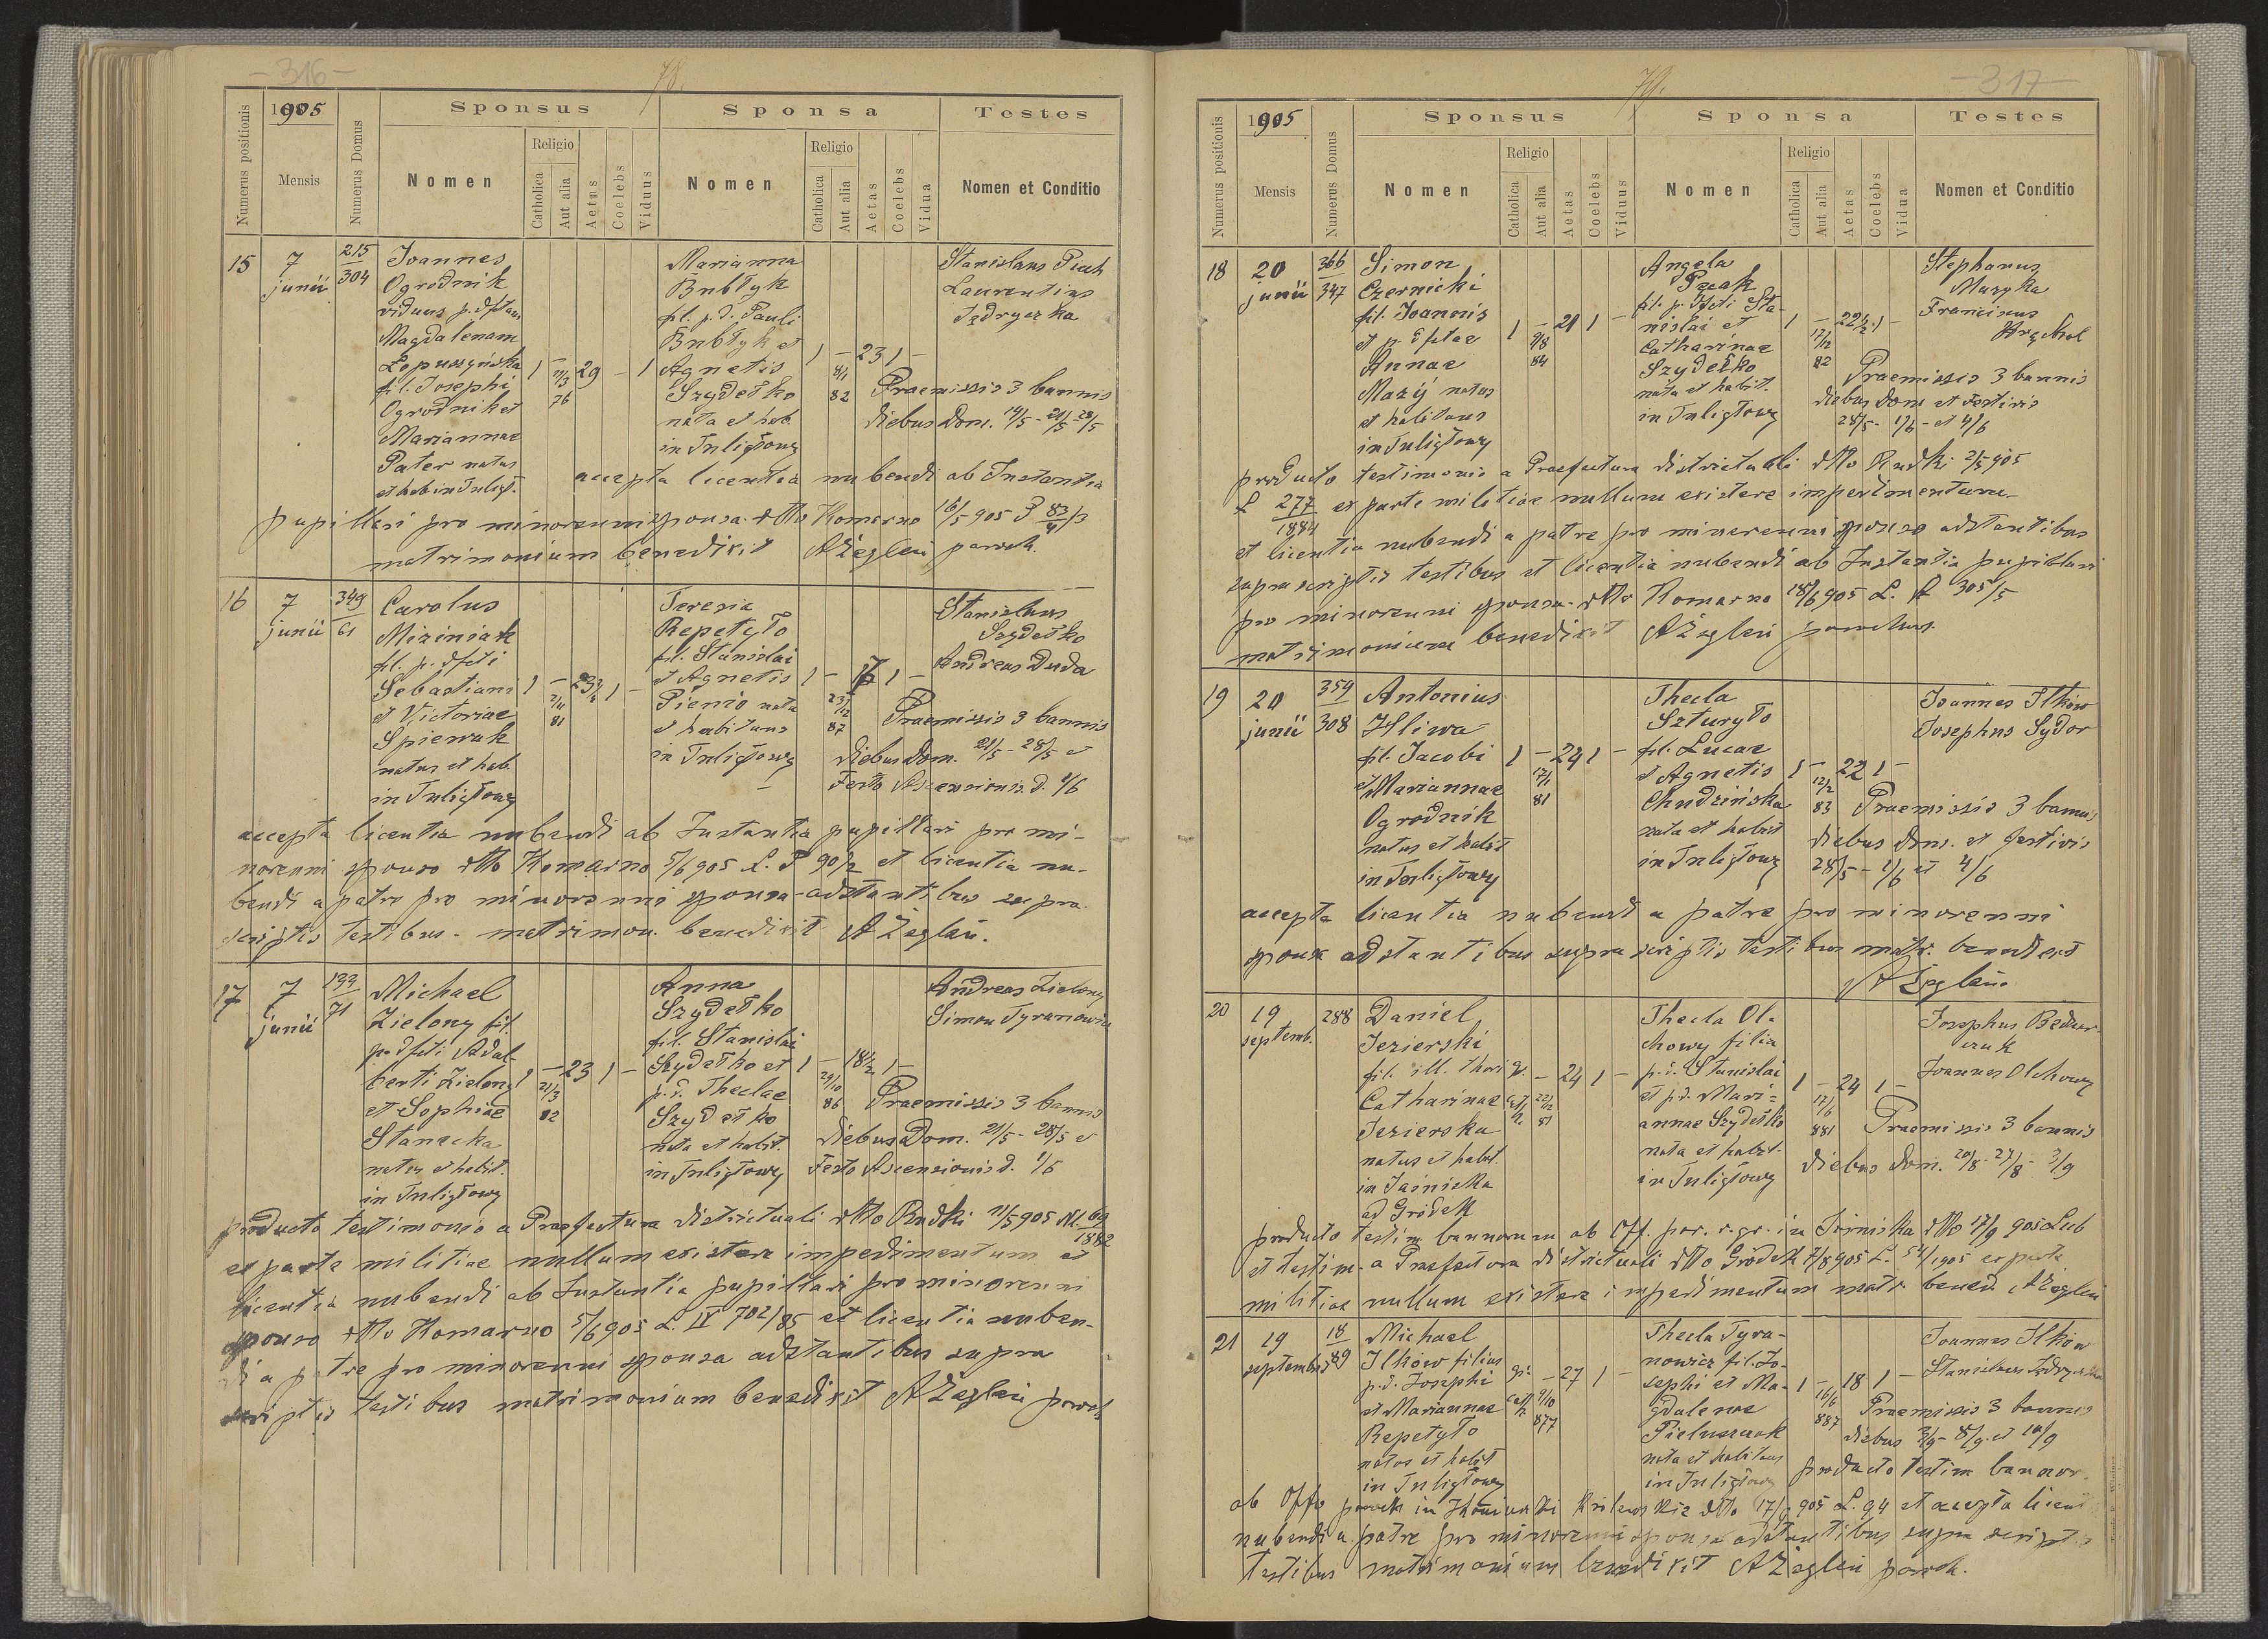 - 316 -
78.
Numerus positionis
1905
Mensis
Numerus Domus
Sponsus
Nomen
Religio
Catholica
Aut alia
Aetas
Coelebs
Viduus
Sponsa
Nomen
Religio
Catholica
Aut alia
Aetas
Coelebs
Vidua
Testes
Nomen et Conditio
15 7 junii 215/304
Joannes
Ogrodnik
viduus p. dftam
Magdalenam
Łopuszyńska
fil. Josephi
Ogrodnik et
Mariannae
Pater natus
et hab in Tuligł.
1 - 29 - 1
11/3 76
Marianna
Bubłyk
fil. p. d. Pauli
Bubłyk et
Agnetis
Szydełko
nata et hab.
in Tuligłowy
1 - 23 1 -
8/1 82
Stanislaus Piech
Laurentius
Jędryczka
Praemissis 3 bannis
diebus Dom. 14/5 - 21/5 - 28/5
accepta licentia nubendi ab Instantia
pupillari pro minorenni sponsa dtto Komarno 16/5 905 P 83/4/3
matrimonium benedixit AŻegleń paroch.
16 7 junii 349/61
Carolus
Miziniak
fil. p. dfcti
Sebastiani
et Victoriae
Spiewak
natus et hab.
in Tuligłowy
1 - 23 1/2 1 -
2/11 81
Teresia
Repetyło
fil. Stanislai
et Agnetis
Pienio nata
et habitans
in Tuligłowy
1 - 17 1 -
23/12 87
Stanislaus
Szydełko
Andreas Duda
Praemissis 3 bannis
diebus Dom. 21/5 - 28/5 et
Festo Ascensionis d. 1/6
accepta licentia nubendi ab Instantia pupillari pro mi-
norenni sponso dtto Komarno 5/6 905 L. P 90/2 et licentia nu-
bendi a patre pro minorenni sponsa adstantibus supra
scriptis testibus - matrimon. benedixit AŻegleń.
17 7 junii 199/71
Michael
Zielony fil.
p. dfcti Adal-
berti Zielony
et Sophiae
Stanecka
natus et habit.
in Tuligłowy
1 - 23 1 -
21/3 82
Anna
Szydełko
fil. Stanislai
Szydełko et
p. d. Theclae
Szydełko
nata et habit.
in Tuligłowy
1 - 18 1/2 1 -
29/10 86
Andreas Zielony
Simon Tyranowicz
Praemissis 3 bannis
diebus Dom. 21/5 - 28/5 et
Festo Ascensionis d. 1/6
producto testimonio a Praefectura districtuali dtto Rudki 11/5 905 N. 69/1882
ex parte militiae nullum existere impedimentum et
licentia nubendi ab Instantia pupillari pro minorenni
sponso dtto Komarno 5/6 905 L. IV 702/85 et licentia nuben-
di a patre pro minorenni sponsa adstantibus supra
scriptis testibus matrimonium benedixit AŻegleń paroch
79.
- 317 -
Numerus positionis
1905
Mensis
Numerus Domus
Sponsus
Nomen
Religio
Catholica
Aut alia
Aetas
Coelebs
Viduus
Sponsa
Nomen
Religio
Catholica
Aut alia
Aetas
Coelebs
Vidua
Testes
Nomen et Conditio
18 20 junii 366/347
Simon
Czernicki
fil. Joannis
et p. dftae
Annae
Mazij natus
et habitans
in Tuligłowy
1 - 21 1 -
9/8 84
Angela
Ptak
fil. p. dfcti Sta-
nislai et
Catharinae
Szydełko
nata et habit.
in Tuligłowy
1 - 22 1/2 1 -
12/12 82
Stephanus
Muzyka
Franciscus
Praemissis 3 bannis
diebus Dom et Festivis
28/5 - 1/6 - et 4/6
producto testimonio a Praefectura districtuali dtto Rudki 2/5 905
L 277/1884 ex parte militiae nullum existere impedimentum
et licentia nubendi a patre pro minorenni sponso adstantibus
supra scriptis testibus et licentia nubendi ab Instantia pupillari
pro minorenni sponsa dtto Komarno 18/6 905 L. P 305/5
matrimonium benedixit AŻegleń parochus.
19 20 junii 359/308
Antonius
Hliwa
fil. Jacobi
et Mariannae
Ogrodnik
natus et habit
in Tuligłowy
1 - 24 1 -
17/1 81
Thecla
Szturyło
fil. Lucae
et Agnetis
Chudzińska
nata et habit
in Tuligłowy
1 - 22 1 -
12/2 83
Joannes Ilkow
Josephus Sydor
Praemissis 3 bannis
diebus Dom. et festivis
28/5 - 1/6 et 4/6
accepta licentia nubendi a patre pro minorenni
sponsa adstantibus supra scriptis testibus matr. benedixit
AŻegleń.
20 19 septemb. 288
Daniel
Jezierski
fil. ill. thori
Catharinae
Jezierska
natus et habit.
in Jaśniska
ad Gródek
gr. cath. - 24 1 -
22/12 81
Thecla Ol-
chowy filia
p. d. Stanislai
et p. d. Mari-
annae Szydełko
nata et habit.
in Tuligłowy
1 - 24 1 -
17/6 881
Josephus Bednar-
czuk
Joannes Olchowy
Praemissis 3 bannis
diebus Dom. 20/8 - 27/8 - 3/9
producto testim. bannorum ab Off. par. r. gr. in Jaśniska dtto 17/9 905 L
et testim. a Praefectura districtuali dtto Gródek 7/8 905 L. 54/1905 ex parte
militiae nullum existere impedimentum matr. bened. AŻegleń
21 19 septemb. 18/389
Michael
Ilkow filius
p. d. Josephi
et Mariannae
Repetyło
natus et habit
in Tuligłowy
gr. cath. - 27 1 -
9/10 877
Thecla Tyra-
nowicz fil. Jo-
sephi et Ma-
gdalenae
Pieluszczak
nata et habitans
in Tuligłowy
1 - 18 1 -
16/6 887
Joannes Ilkow
Stanislaus Jędryczka
Praemissis 3 bannis
diebus 3/9 - 8/9 et 10/9
producto testim bannor.
ab Offo paroch in dtto 17/9 905 L. 94 et accepta licent
nubendi a patre pro minorenni sponsa adstantibus supra scriptis
testibus matrimonium benedixit AŻegleń paroch.